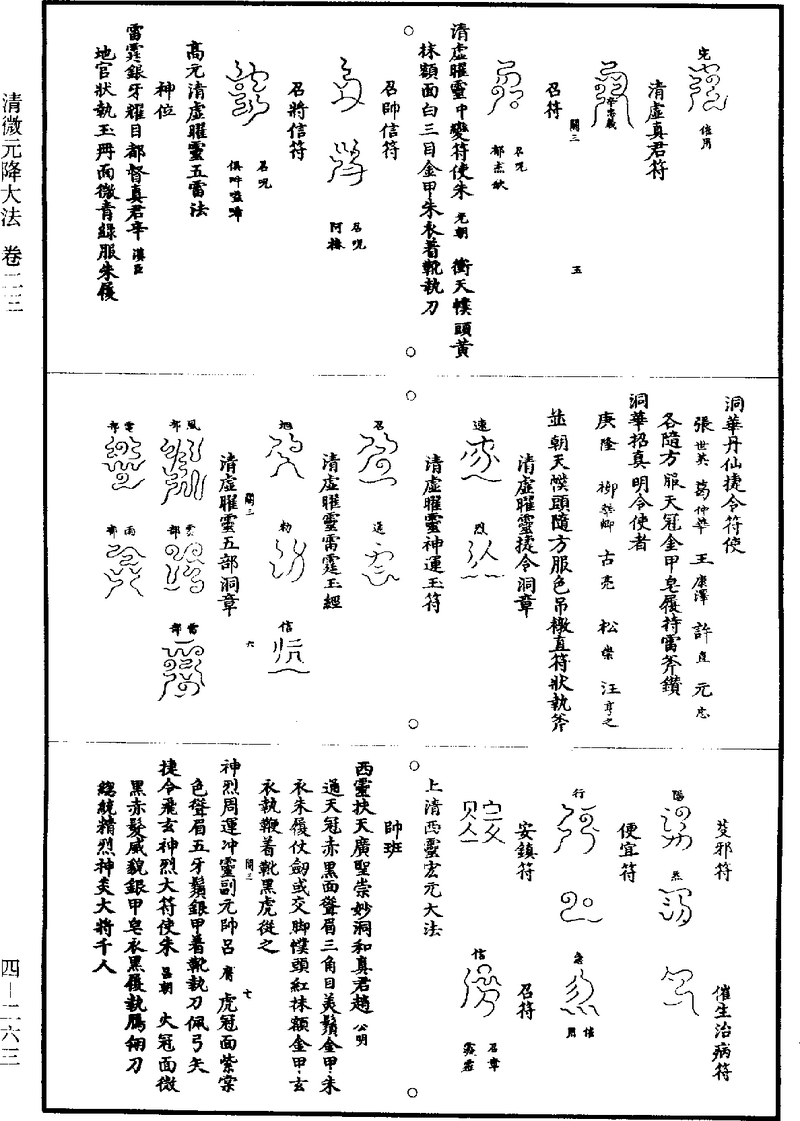 清微元降大法　卷二三
四—二六三
完
信用
清虛真君符
辛忠義
召符
關三
五
召咒
清虛曜靈中變符使朱元朝　衝天幞頭黃
抹額面白三目金甲朱衣着靴執刀
召帥信符
召咒
召將信符
召咒
高元清虛曜靈五雷法
神位
雷霆銀牙耀目都督真君辛漢臣
地官狀執玉冊面微青綠服朱履
洞華丹仙捷令符使
張世英　葛仲華　王康澤　許直　元忠
各隨方服天冠金甲皂履持雷斧鑽
洞華招真明令使者
庚隆　柳　卿　古亮　松崇　汪亨之
並朝天幞頭隨方服色吊橔直符狀執斧
清虛曜靈捷令洞章
速
烈
清虛曜靈神運玉符
召
追
清虛曜靈雷霆玉經
勑
信
關三
六
清虛曜靈五部洞章
風部
雲部
雷部
電部
雨部
芟邪符
催生治病符
陽
便宜符
行
急
信用
安鎮符
召符
信
召章
上清西靈宏元大法
帥班
西靈扶天廣聖崇妙洞和真君趙公明
通天冠赤黑面聳眉三角目美鬚金甲朱
衣朱履仗劒或交脚幞頭紅抹額金甲玄
衣執鞭着靴黑虎從之
神烈周運冲靈副元帥呂　虎冠面紫棠
關三
七
色聳眉五牙鬚銀甲着靴執刀佩弓矢
捷令飛玄神烈大符使朱昌朝　火冠面微
黑赤髮威貌銀甲皂衣黑履執鴈翎刀
總統精烈神炁大將千人